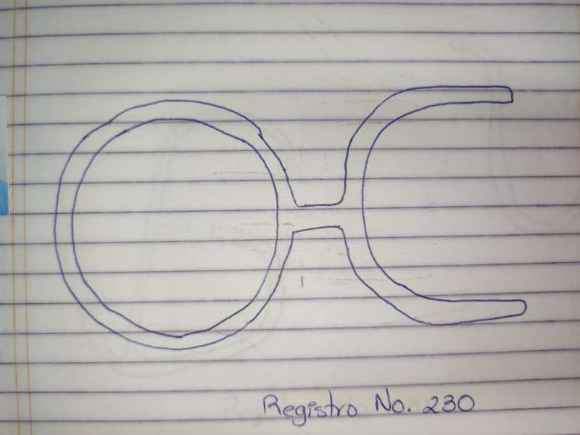 Registro No. 230